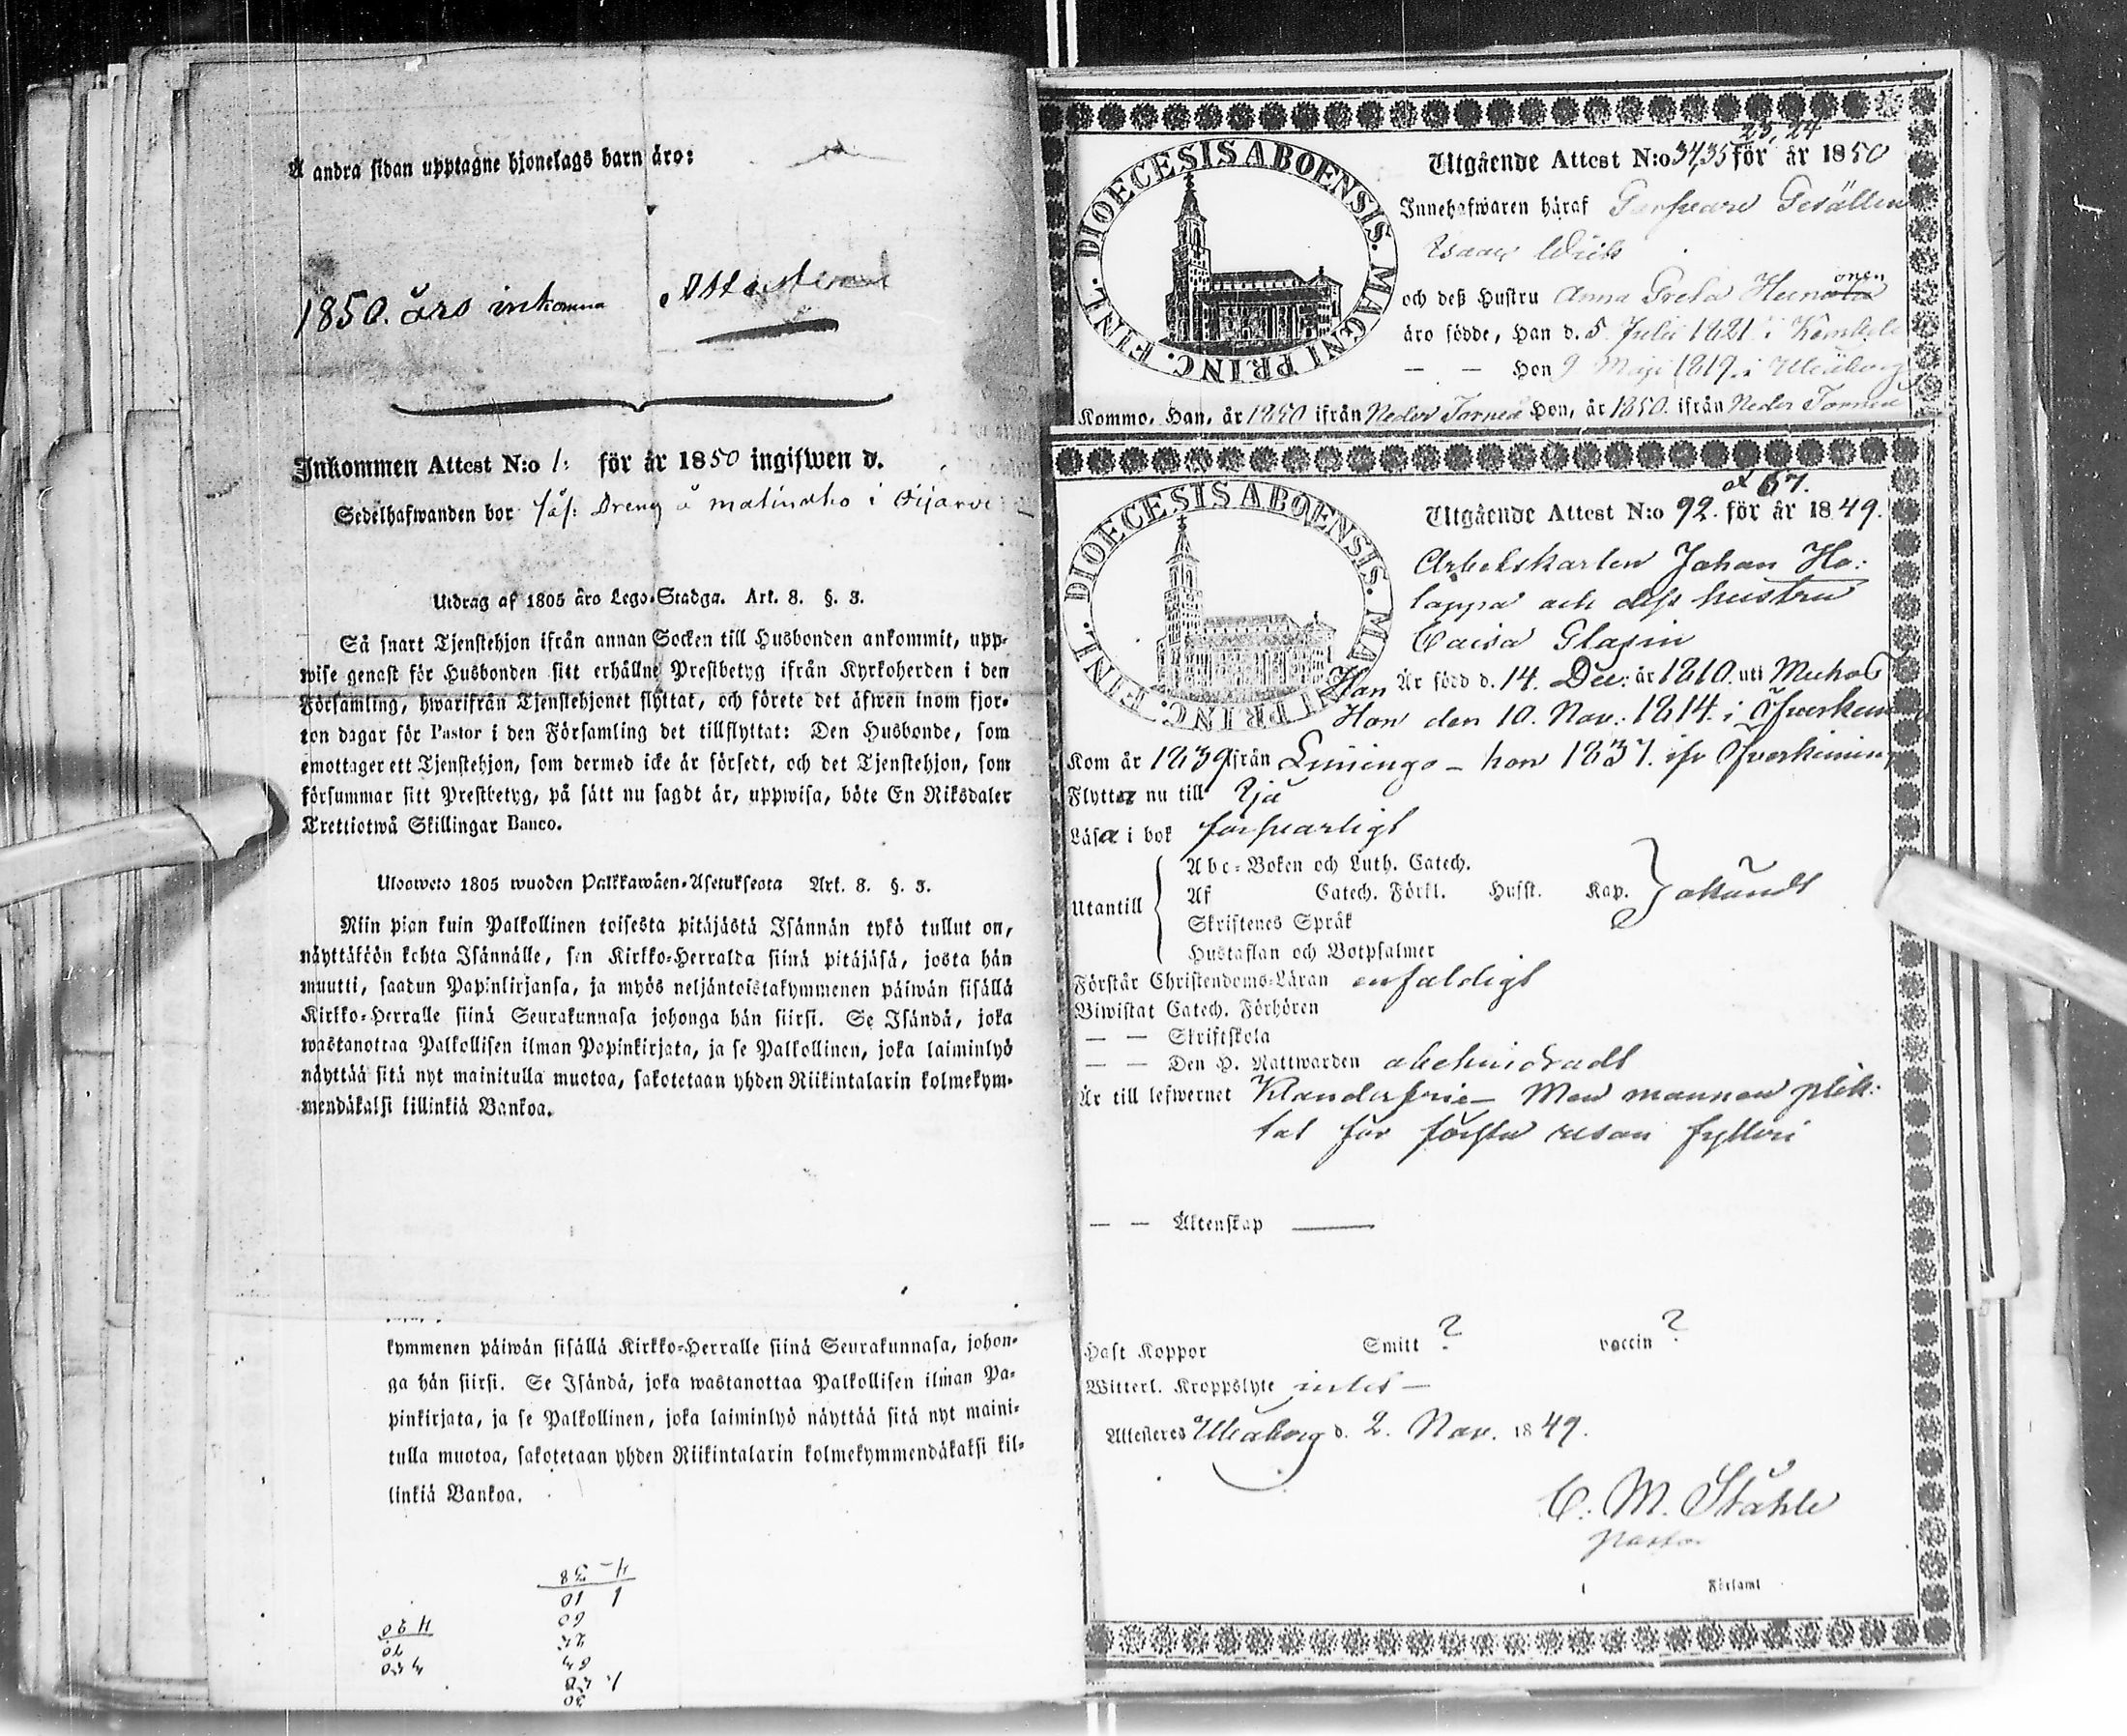 Å andra sidan upptagne hjonelags barn äro:
1850. års inkomna Attester
Inkommen Attest N:o 1: för år 1850 ingifwen d.
Sedelhafwanden bor såf: Dreng å matinaho i Oijarvi
Utdrag af 1805 års Lego-Stadga. Art. 8. §. 3.
Så snart Tjenstehjon ifrån annan Socken till Husbonden ankommit, upp-
wise genast för Husbonden sitt erhållne Prestbetyg ifrån Kyrkoherden i den
Församling, hwarifrån Tjenstehjonet flyttat, och förete det äfwen inom fjor-
ton dagar för Pastor i den Församling det tillflyttat: Den Husbonde, som
emottager ett Tjenstehjon, som dermed icke är försedt, och det Tjenstehjon, som
försummar sitt Prestbetyg, på sätt nu sagdt är, uppwisa, böte En Riksdaler
Trettiotwå Skillingar Banco.
Ulosweto 1805 wuoden Palkkawäen-Asetuksesta Art. 8. §. 3.
Niin pian kuin Palkollinen toisesta pitäjästä Isännän tykö tullut on,
näyttäköön kohta Isännälle, sen Kirkko-Herralda siinä pitäjäsä, josta hän
muutti, saadun Papinkirjansa, ja myös neljäntoistakymmenen päiwän sisällä
Kirkko-Herralle siinä Seurakunnasa johonga hän siirsi. Se Isändä, joka
wastanottaa Palkollisen ilman Papinkirjata, ja se Palkollinen, joka laiminlyö
näyttää sitä nyt mainitulla muotoa, sakotetaan yhden Riikintalarin kolmekym-
mendäkaksi killinkiä Bankoa.
kymmenen päiwän sisällä Kirkko-Herralle siinä Seurakunnasa, johon-
ga hän siirsi. Se Isändä, joka wastanottaa Palkollisen ilman Pa-
pinkirjata, ja se Palkollinen, joka laiminlyö näyttää sitä nyt maini-
tulla muotoa, sakotetaan yhden Riikintalarin kolmekymmendäkaksi kil-
linkiä Bankoa.
DIOECESIS ABOENSIS. MAGNI PRINC. FINL.
23, 24
Utgående Attest N:o 34,35 för år 1850
Innehafwaren häraf Garfvare Gesällen
Isaac Wiik
och deß Hustru Anna Greta Heinonen
äro födde, Han d. 5 Julii 1821 i Kembele
— — Hon 9 Maji 1819 i Uleåborg
Kommo, Han, år 1850 ifrån Neder Torneå Hon, år 1850. ifrån Neder Torneå
DIOECESIS ABOENSIS. MAGNI PRINC. FINL.
67.
Utgående Attest N:o 92. för år 1849.
Arbetskarlen Johan Ho:
lappa och dess hustru
Caisa Glasin
Han Är född d. 14. Dec: år 1810. uti Muhos
Hon den 10. Nov: 1814. i Öfverkim
Kom år 1839 ifrån Limingo – hon 1837. ifr Öfverkiming
Flytta nu till Ijå
Läsa i bok försvarligt
Utantill
Abc-Boken och Luth. Catech.
Af Catech. Förkl. Hufst. Kap.
Skriftenes Språk
Hustaflan och Botpsalmer
Förstår Christendoms-Läran enfaldigt
Biwistat Catech. Förhören
— — Skriftskola
— — Den H. Nattwarden obehindradt
Är till lefwernet Klanderfrie – Men mannen plik:
tat för första resan fylleri
— — Äktenskap —
Haft Koppor Smitt ? vaccin ?
Witterl. Kroppslyte intet –
Attesteres Uleåborg d. 2. Nov. 1849.
C. M. Ståhle
Pastor
i Församl